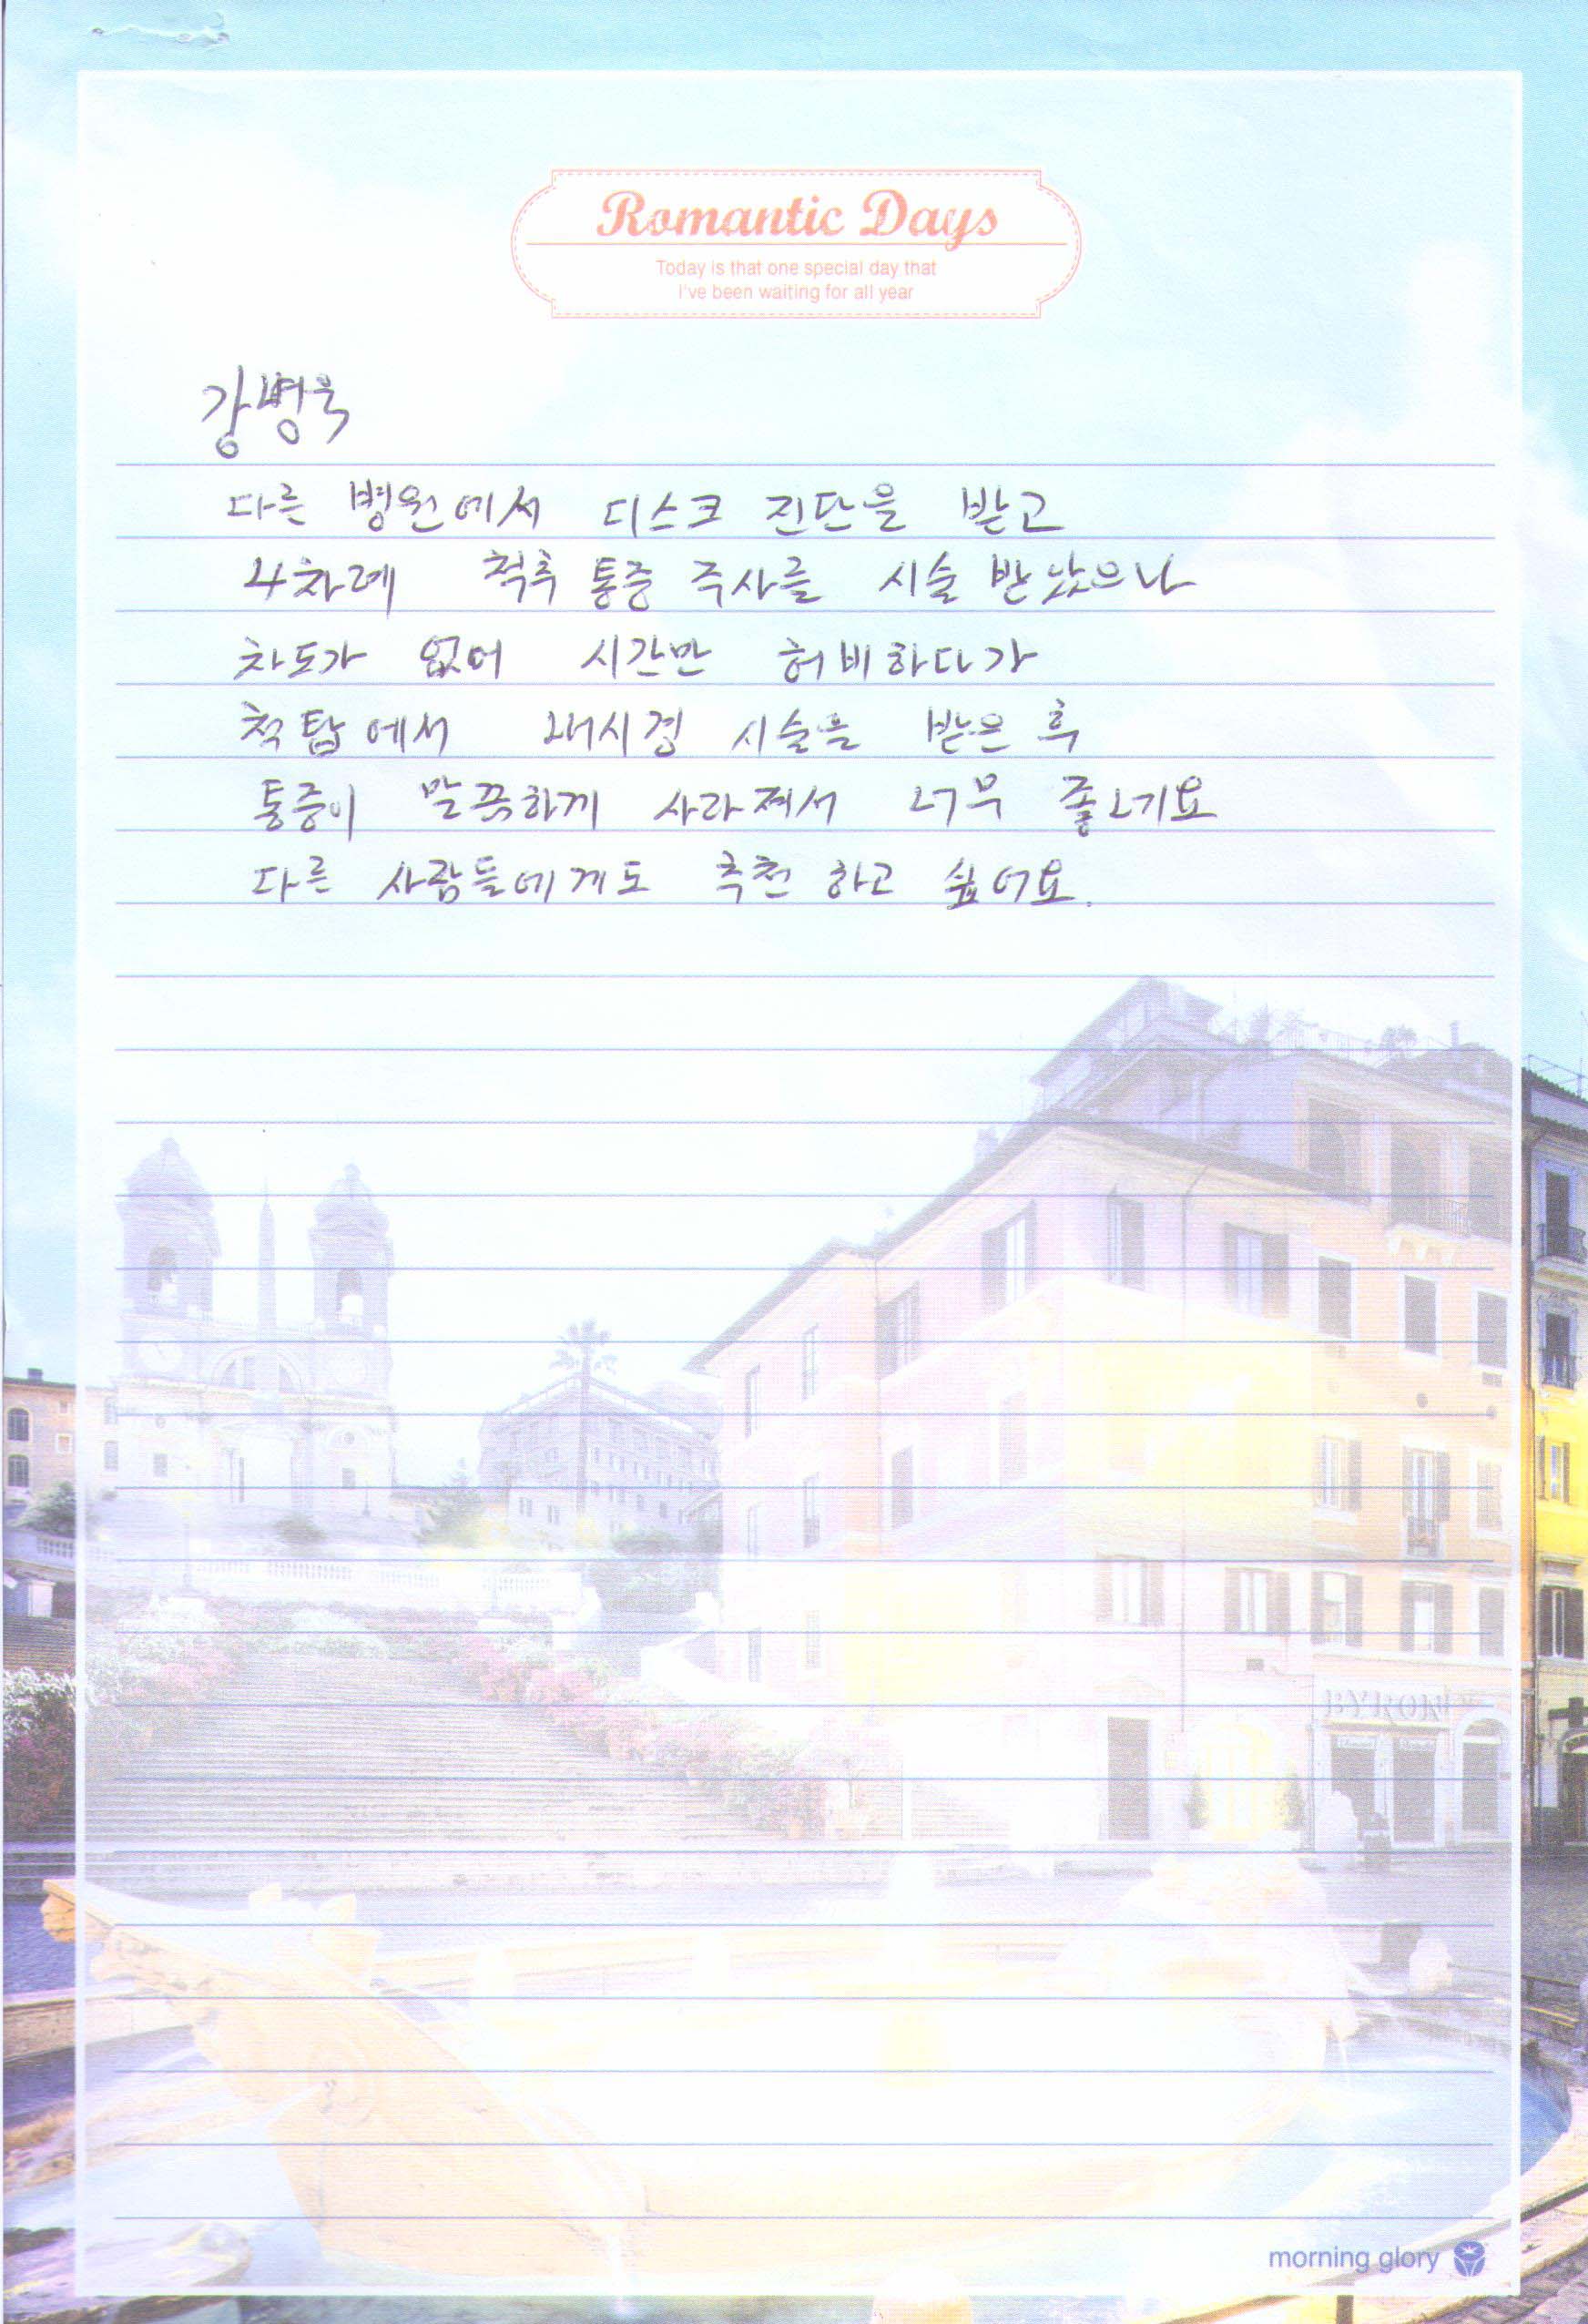 Romantic Days
Today is that one special day that
I've been waiting for all year
강병욱
다른 병원에서 디스크 진단을 받고
4차례 척추 통증 주사를 시술 받았으나
차도가 없어 시간만 허비하다가
척탑에서 내시경 시술을 받은 후
통증이 말끔하게 사라져서 너무 좋네요
다른 사람들에게도 추천 하고 싶어요.
BYRON
morning glory